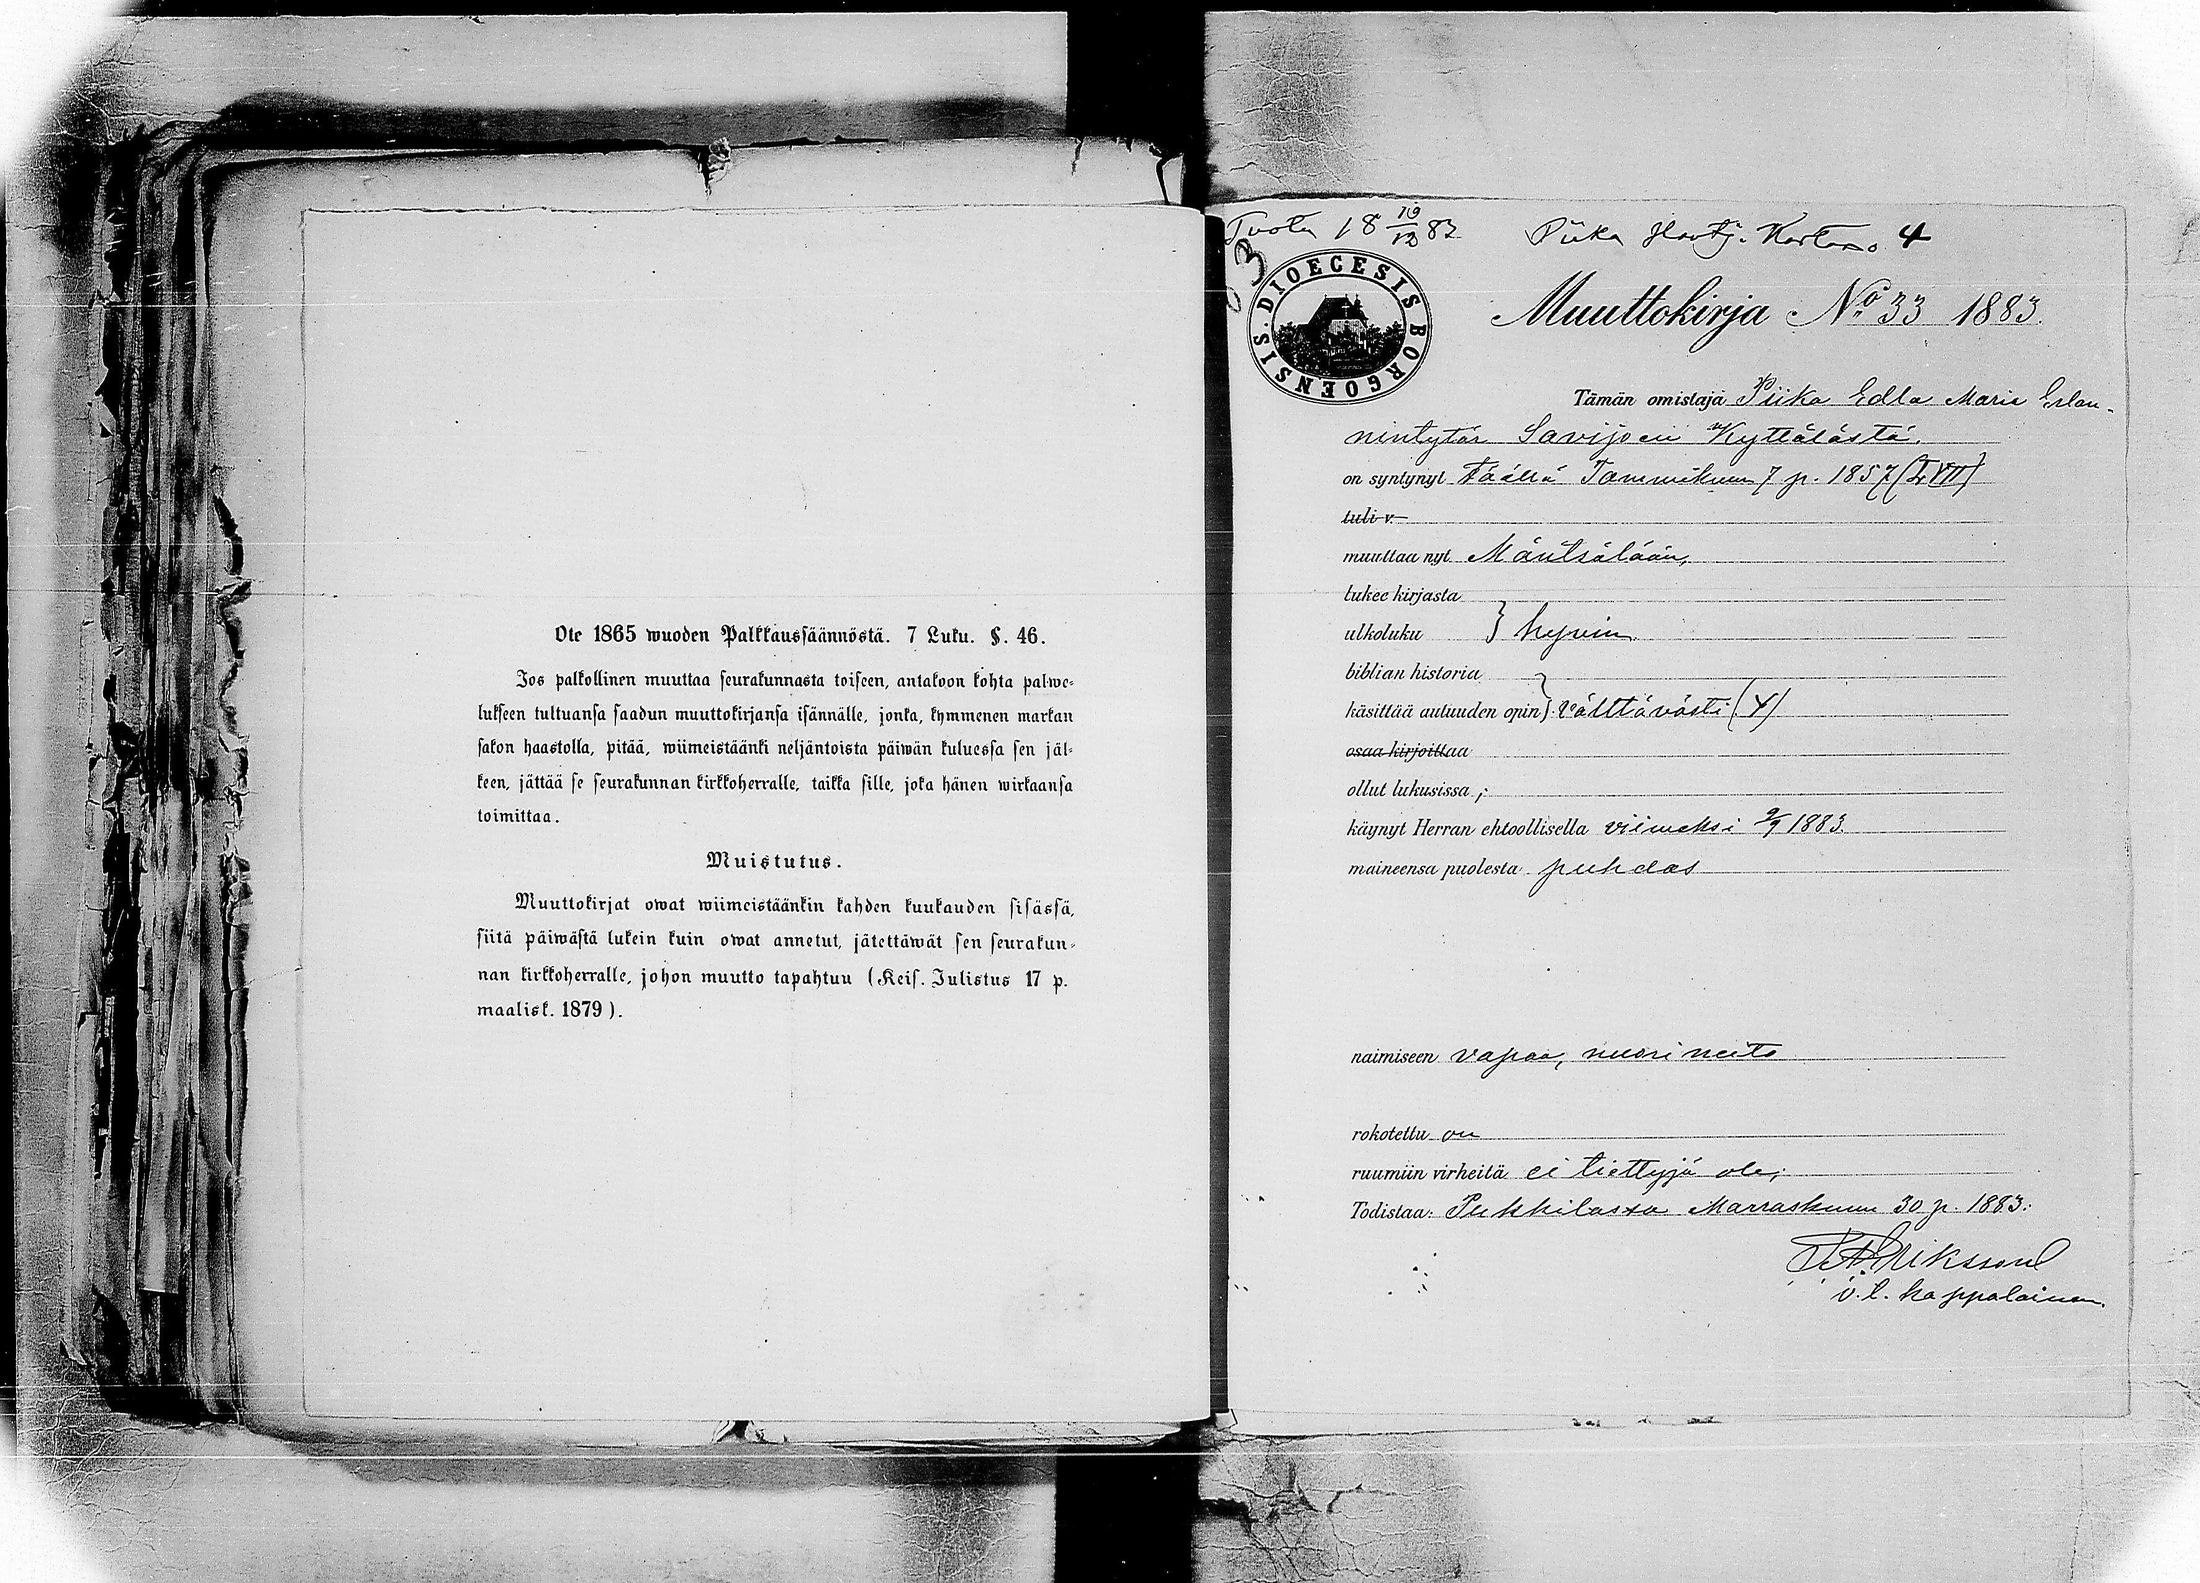 Ote 1865 wuoden Palkkaussäännöstä. 7 Luku. §. 46.
Jos palkollinen muuttaa seurakunnasta toiseen, antakoon kohta palwe-
lukseen tultuansa saadun muuttokirjansa isännälle, jonka, kymmenen markan
sakon haastolla, pitää, wiimeistäänki neljäntoista päiwän kuluessa sen jäl-
keen, jättää se seurakunnan kirkkoherralle, taikka sille, joka hänen wirkaansa
toimittaa.
Muistutus.
Muuttokirjat owat wiimeistäänkin kahden kuukauden sisässä,
siitä päiwästä lukein kuin owat annetut, jätettäwät sen seurakun-
nan kirkkoherralle, johon muutto tapahtuu (Keis. Julistus 17 p.
maalisk. 1879).
Tuotu 18 10/12 83 Piika 4
DIOECESIS BORGOENSIS.
Muuttokirja No 33 1883.
Tämän omistaja Piika Edla Maria Erlan-
nintytär Savijoen Kyttälästä.
on syntynyt täällä Tammikuun 7 p. 1857 (LVII)
tuli v.
muuttaa nyt Mäntsälään,
lukee kirjasta
ulkoluku } hyvin.
biblian historia
käsittää autuuden opin } välttävästi (Y)
osaa kirjoittaa
ollut lukusissa ;
käynyt Herran ehtoollisella viimeksi 9/9 1883.
maineensa puolesta puhdas
naimiseen vapaa, nuori neito
rokotettu on
ruumiin virheitä ei tiettyjä ole;
Todistaa: Pukkilassa Marraskuun 30 p. 1883.
Eriksson
v.t. kappalainen.